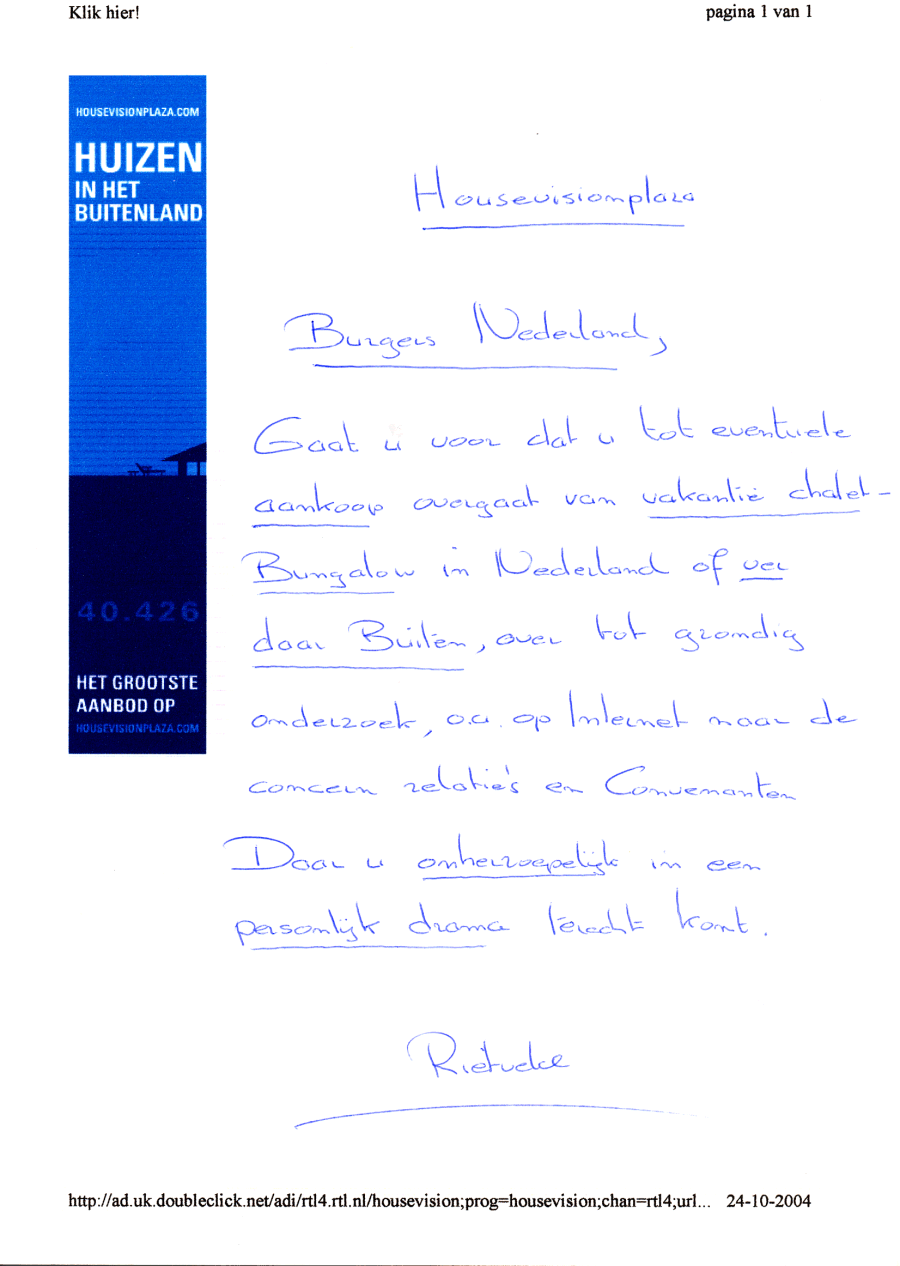 Klik hier!
pagina 1 van 1
HOUSEVISIONPLAZA.COM
HUIZEN
IN HET
BUITENLAND
40.426
HET GROOTSTE
AANBOD OP
HOUSEVISIONPLAZA.COM
Housevisionplaza
Burgers Nederland,
Gaat u voor dat u tot eventuele
aankoop overgaat van vakantie chalet-
Bungalow in Nederland of ver
daar Buiten, over tot grondig
onderzoek, o.a. op Internet naar de
concern relatie's en Convenanten
Daar u onherroepelijk in een
personlijk drama terecht komt.
http://ad.uk.doubleclick.net/adi/rtl4.rtl.nl/housevision;prog=housevision;chan=rtl4;url... 24-10-2004